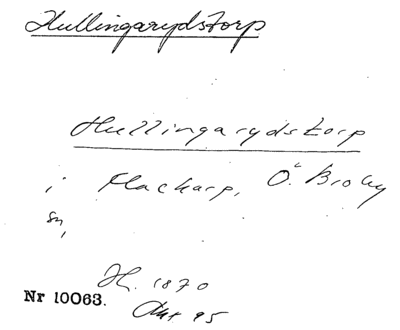 Hullingarydstorp
Hullingarydstorp
i Flackarp, Ö. Broby
sn,
Hl. 1870
Nr 10063.
Akt 95